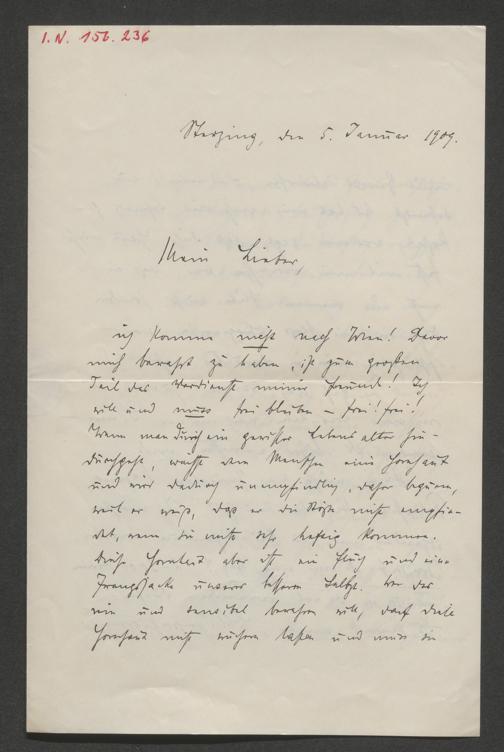 I.N. 156.236
Sterzing, den 5. Januar 1909.
Mein Lieber,
ich komme nicht nach Wien! Davor
mich bewahrt zu haben, ist zum großen
Teil das Verdienst meiner Freunde! Ich
will und muss frei bleiben – frei! frei!
Wenn man durch ein gewisses Lebensalter hin-
durchgeht, wächst dem Menschen eine Hornhaut
und wird dadurch unempfindlich, daher bequem,
weil er weiß, daß er die Stöße nicht empfin-
det, wenn sie nicht sehr heftig kommen.
Diese Hornhaut aber ist ein Fluch und eine
Zwangsjacke unseres bessern Selbst. Wer das
rein und sensibel bewahren will, darf diese
Hornhaut nicht wuchern lassen und muss sie